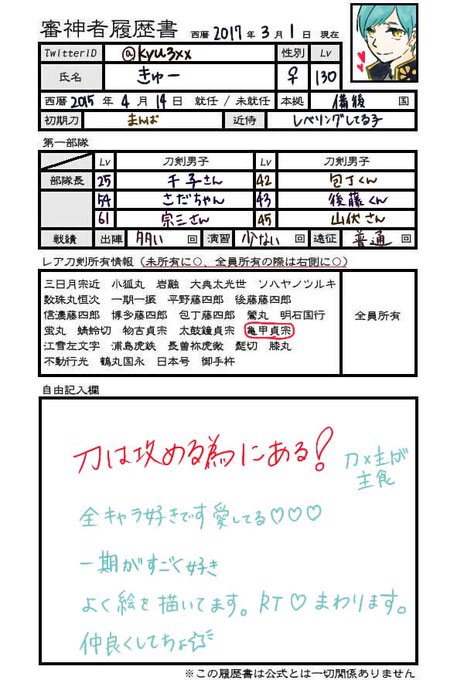 審神者履歴書 西暦 2017年 3月 1日 現在
TwitterID @kyu3xx 性別 Lv
氏名 きゅー ♀ 130
西暦 2015年 4月 14日 就任 / 未就任 本拠 備後 国
初期刀 まんば 近侍 レベリングしてる子
第一部隊
Lv 刀剣男子 Lv 刀剣男子
部隊長 25 千子さん 42 包丁くん
54 さだちゃん 43 後藤くん
61 宗三さん 45 山伏さん
戦績 出陣 多い 回 演習 少ない 回 遠征 普通 回
レア刀剣所有情報(未所有に○、全員所有の際は右側に○)
三日月宗近 小狐丸 岩融 大典太光世 ソハヤノツルキ
数珠丸恒次 一期一振 平野藤四郎 後藤藤四郎
信濃藤四郎 博多藤四郎 包丁藤四郎 鶯丸 明石国行
蛍丸 蜻蛉切 物吉貞宗 太鼓鐘貞宗 亀甲貞宗
江雪左文字 浦島虎鉄 長曽祢虎徹 髭切 膝丸
不動行光 鶴丸国永 日本号 御手杵
全員所有
自由記入欄
刀は攻める為にある!
刀×まんば
主食
全キャラ好きです愛してる♡♡♡
一期がすごく好き
よく絵を描いてます。RT♡まわります。
仲良くしてちょ☆
※この履歴書は公式とは一切関係ありません